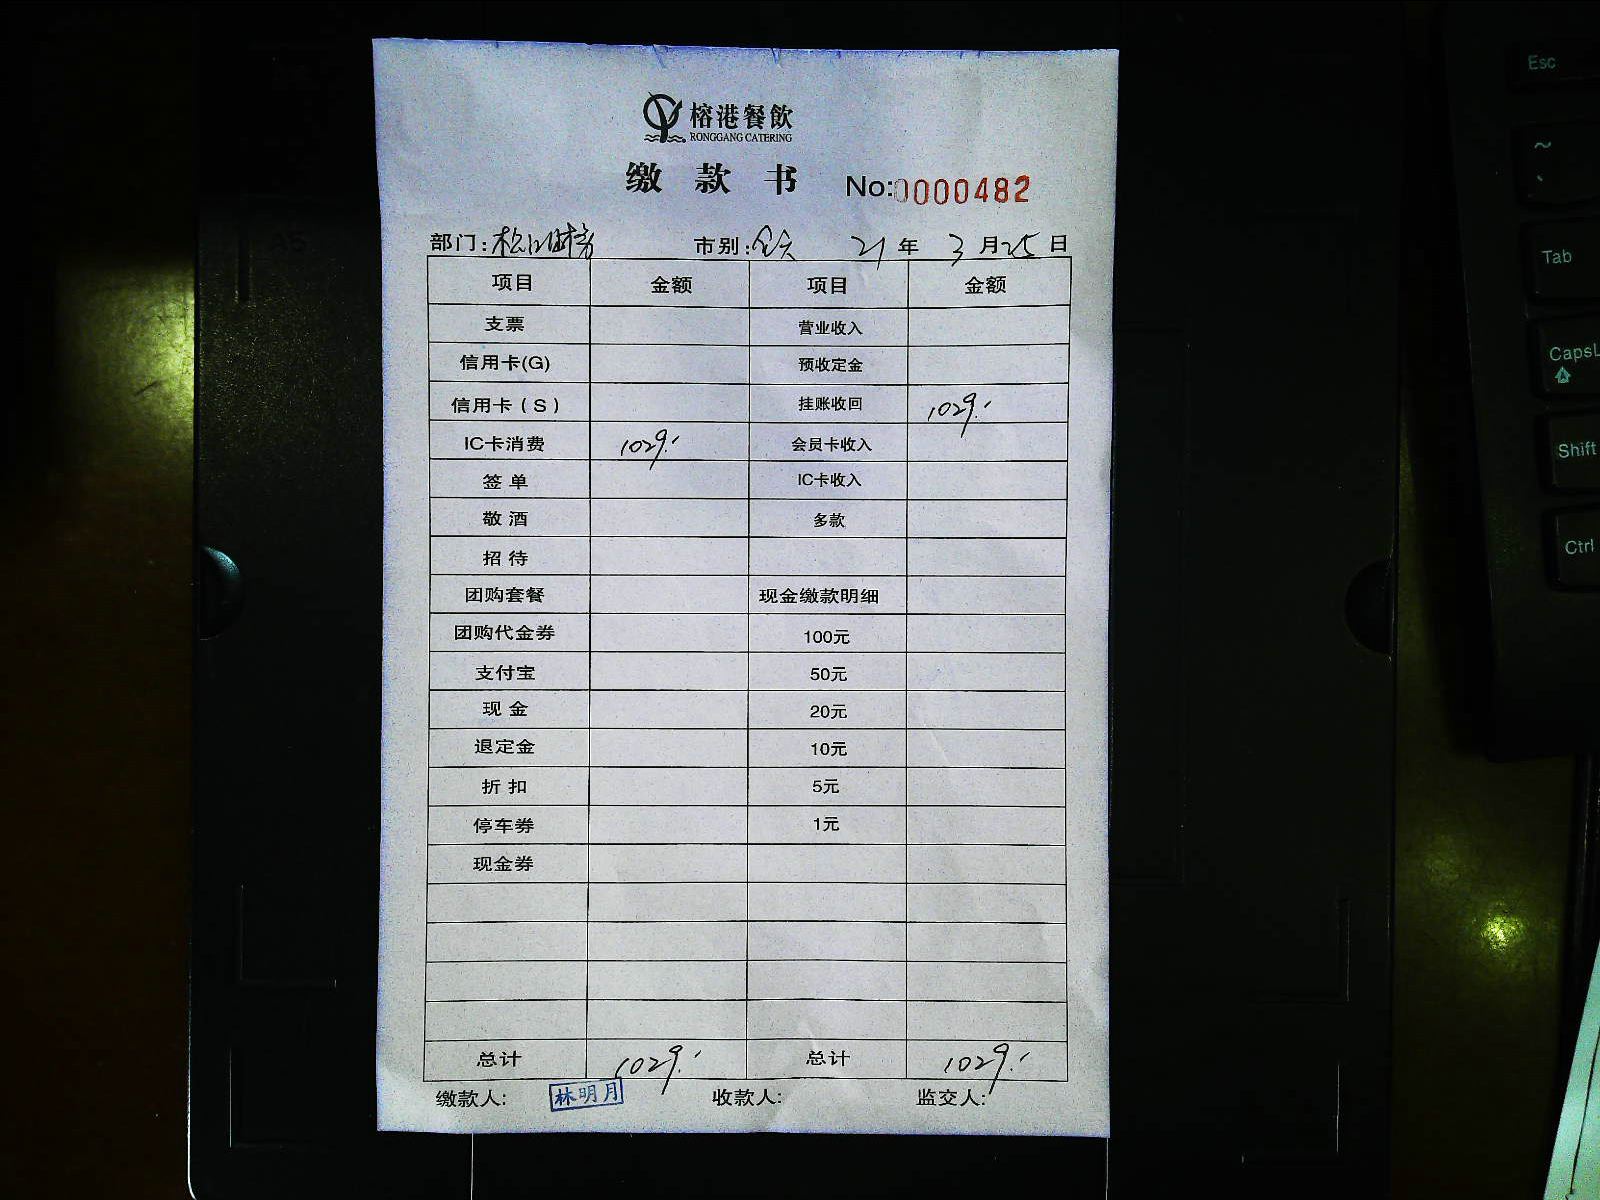 榕港餐飲
RONGGANG CATERING
缴款书 No:0000482
部门: 市别:全天 21年3月25日
项目 金额 项目 金额
支票 营业收入
信用卡(G) 预收定金
信用卡(S) 挂账收回 1029.-
IC卡消费 1029.- 会员卡收入
签单 IC卡收入
敬酒 多款
招待
团购套餐 现金缴款明细
团购代金券 100元
支付宝 50元
现金 20元
退定金 10元
折扣 5元
停车券 1元
现金券
总计 1029.- 总计 1029.-
缴款人: 林明月 收款人: 监交人:
Esc
~
`
Tab
CapsL
Shift
Ctrl